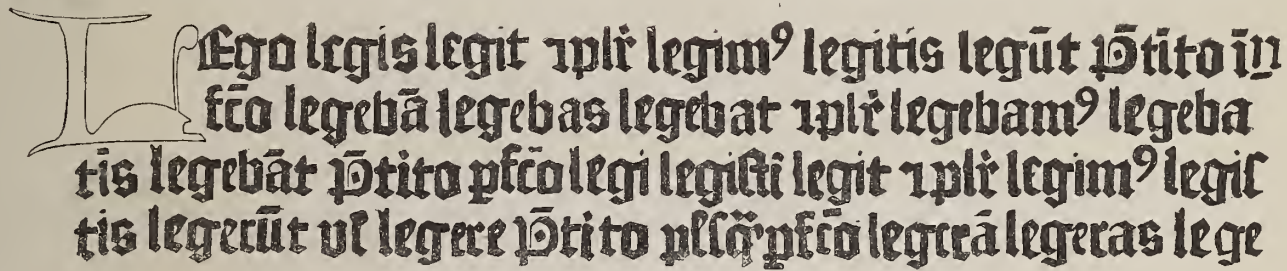 LEgo legis legit ⁊plr̄ legimꝰ legitis legūt Ꝑtito īn
fc̄o legebā legebas legebat ⁊plr̄ legebamꝰ legeba
tis legebāt Ꝑtito ꝑfc̄o legi legiſti legit ⁊plr̄ legimꝰ legiſ
tis legerūt vł legere Ꝑtito plſq̄ꝑfc̄o legerā legeras lege